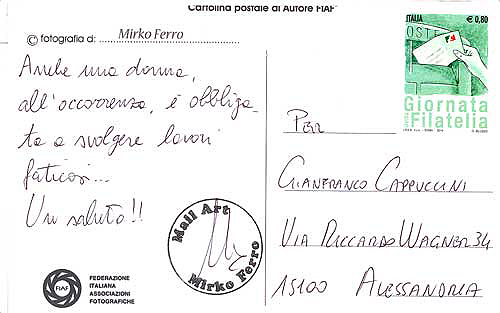 Cartolina postale di Autore FIAF
© fotografia di: Mirko Ferro
Anche una donna,
all'occorrenza, è obbliga-
ta a svolgere lavori
faticosi...
Un saluto!!
Mail Art
Mirko Ferro
FIAF
FEDERAZIONE
ITALIANA
ASSOCIAZIONI
FOTOGRAFICHE
ITALIA € 0,80
POSTE
Giornata
della Filatelia
PER
GIANFRANCO CAPPUCCINI
VIA RICCARDO WAGNER 34
15100 ALESSANDRIA